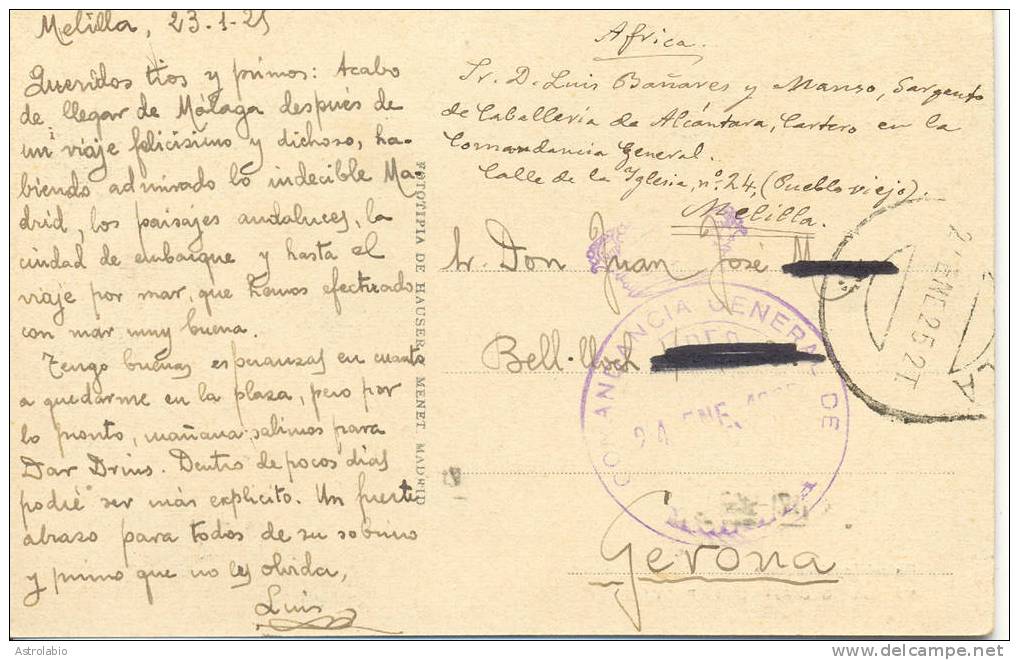 Melilla, 23-1-25
Queridos tios y primos: Acabo
de llegar de Málaga después de
un viaje felicísimo y dichoso, ha-
biendo admirado lo indecible Ma-
drid, los paisajes andaluces, la
ciudad de embarque y hasta el
viaje por mar, que hemos efectuado
con mar muy buena.
Tengo buenas esperanzas en cuanto
a quedarme en la plaza, pero por
lo pronto, mañana salimos para
Dar Drius. Dentro de pocos días
podré ser más explícito. Un fuerte
abrazo para todos de su sobrino
y primo que no les olvida,
Luis
FOTOTIPIA DE HAUSER Y MENET. MADRID
Africa.
Sr. D. Luis Bañares y Manso, Sargento
de Caballería de Alcántara, Cartero en la
Comandancia General.
Calle de la Iglesia, nº 24, (Pueblo viejo).
Melilla.
Sr. Don Juan José M
Bell-lloch
Gerona
COMANDANCIA GENERAL DE
24 ENE.
ENE 25 2T
Astrolabio
delcampe.net